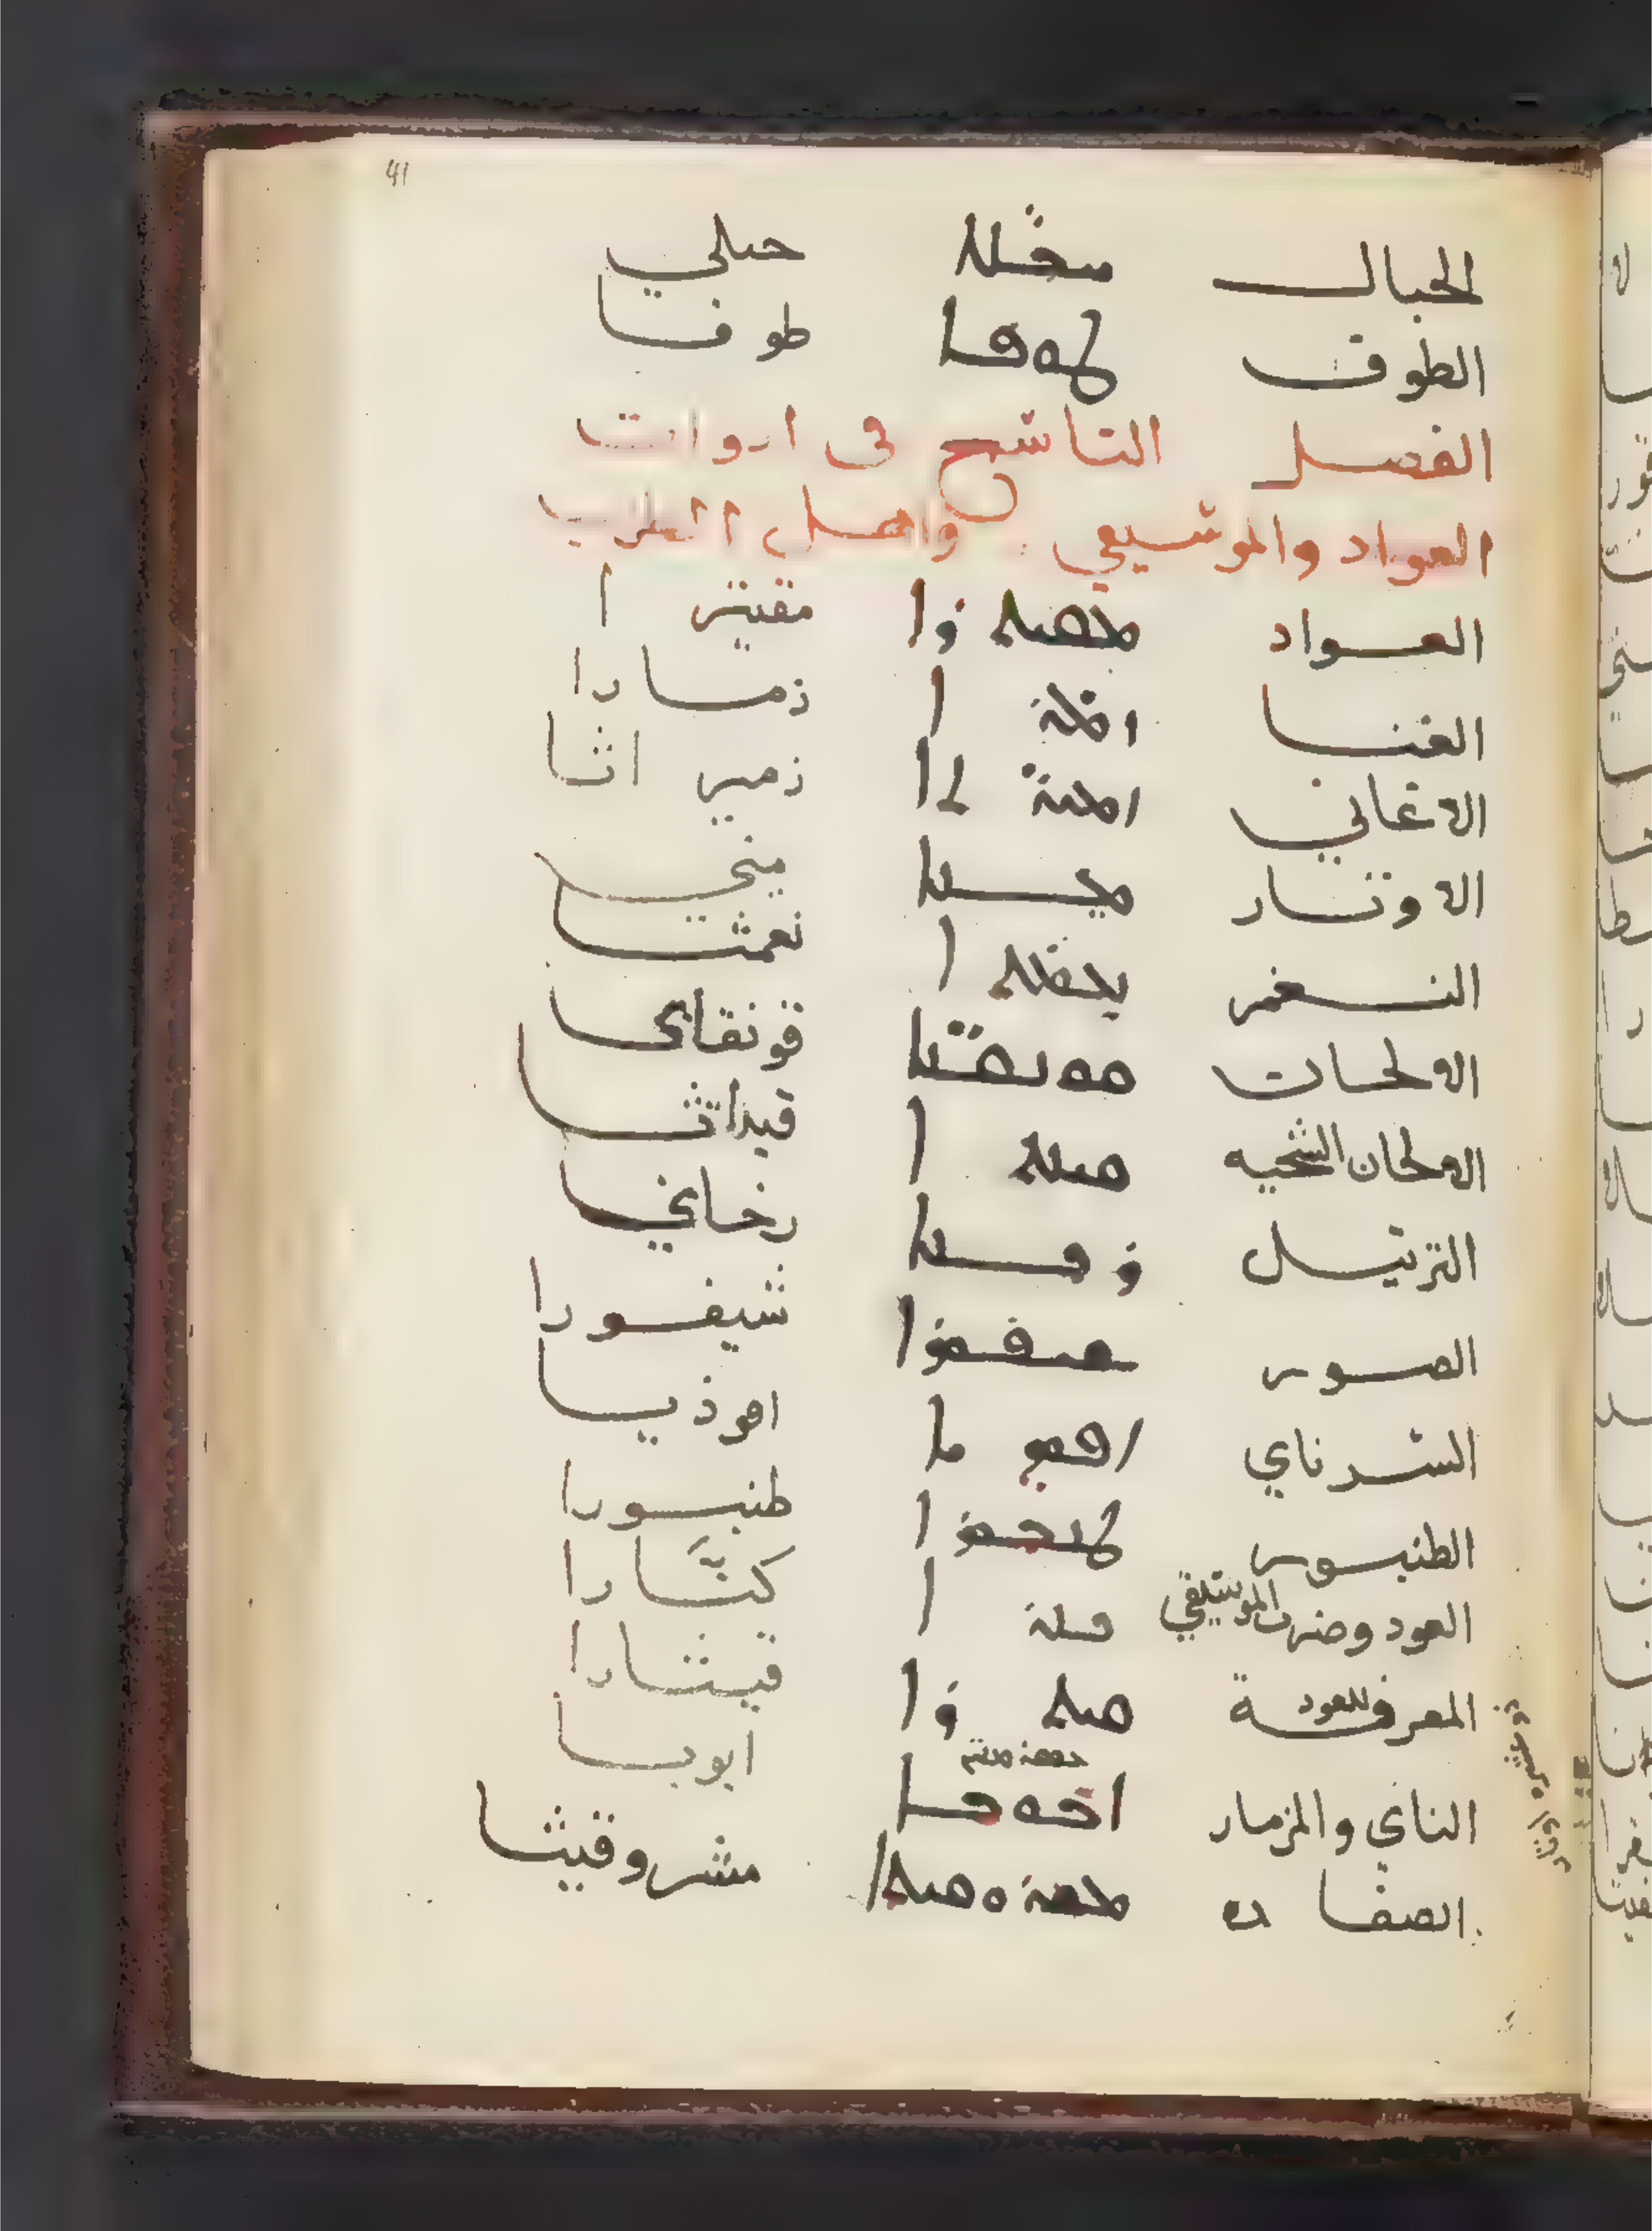 41
الحبال ܚܒ̈ܠܐ حبلي
الطوف ܛܘܦܐ طوفا
الفصل التاسع في ادوات
العواد والموسيقي واهل الطرب
العواد ܡܩܝܬܪܐ مقيثرا
الغنا ܙܡܪܐ زمارا
الاغاني ܙܡܝܪ̈ܬܐ زميراثا
الاوتار ܡܢܐ منى
النغم ܢܥܡܬܐ نعمثا
الالحان ܩܘܢܩܝܐ قونقايى
الالحان الشجيه ܩܝܢܬܐ قيناثا
الترتيل ܪܘܚܢܐ
الصور ܫܝܦܘܪܐ شيفورا
السرناي ܐܘܦܕܝܐ
الطنبور ܛܢܒܘܪܐ طنبورا
العود وضرب الموسيقي ܟܢܪܐ كنارا
المعرفة للعود ܩܝܬܪܐ قيثارا
الناي والمزمار ܐܒܘܒܐ ابوبا
الصفاره ܡܫܪܘܩܝܬܐ مشروقيثا